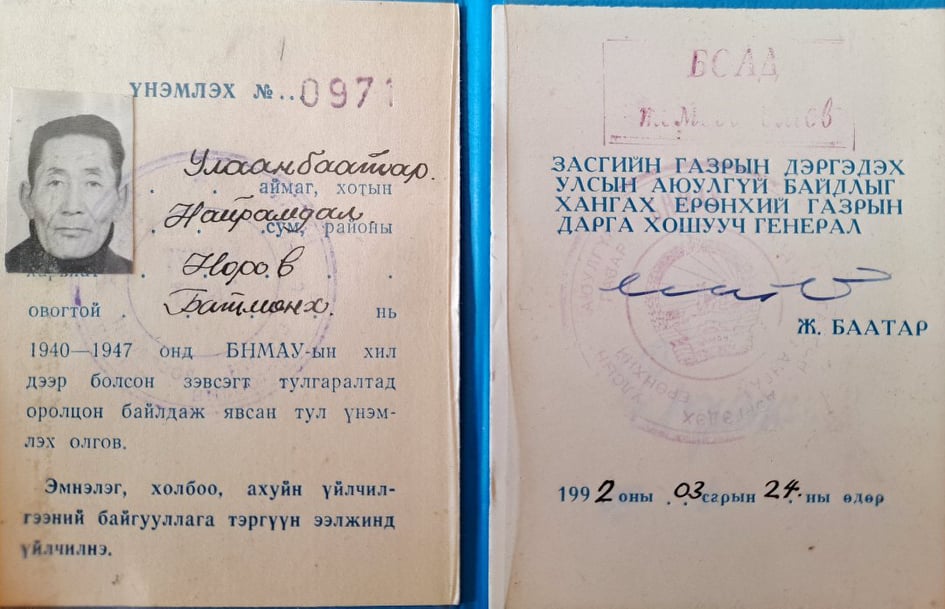 ҮНЭМЛЭХ № ... 0971
Улаанбаатар.
аймаг, хотын
Найрамдал
сум, районы
Норов
овогтой Батмөнх. нь
1940—1947 онд БНМАУ-ын хил
дээр болсон зэвсэгт тулгаралтад
оролцон байлдаж явсан тул үнэм-
лэх олгов.
Эмнэлэг, холбоо, ахуйн үйлчил-
гээний байгууллага тэргүүн ээлжинд
үйлчилнэ.
БСАД
ЗАСГИЙН ГАЗРЫН ДЭРГЭДЭХ
УЛСЫН АЮУЛГҮЙ БАЙДЛЫГ
ХАНГАХ ЕРӨНХИЙ ГАЗРЫН
ДАРГА ХОШУУЧ ГЕНЕРАЛ
Ж. БААТАР
1992 оны 03 сарын 24. ны өдөр